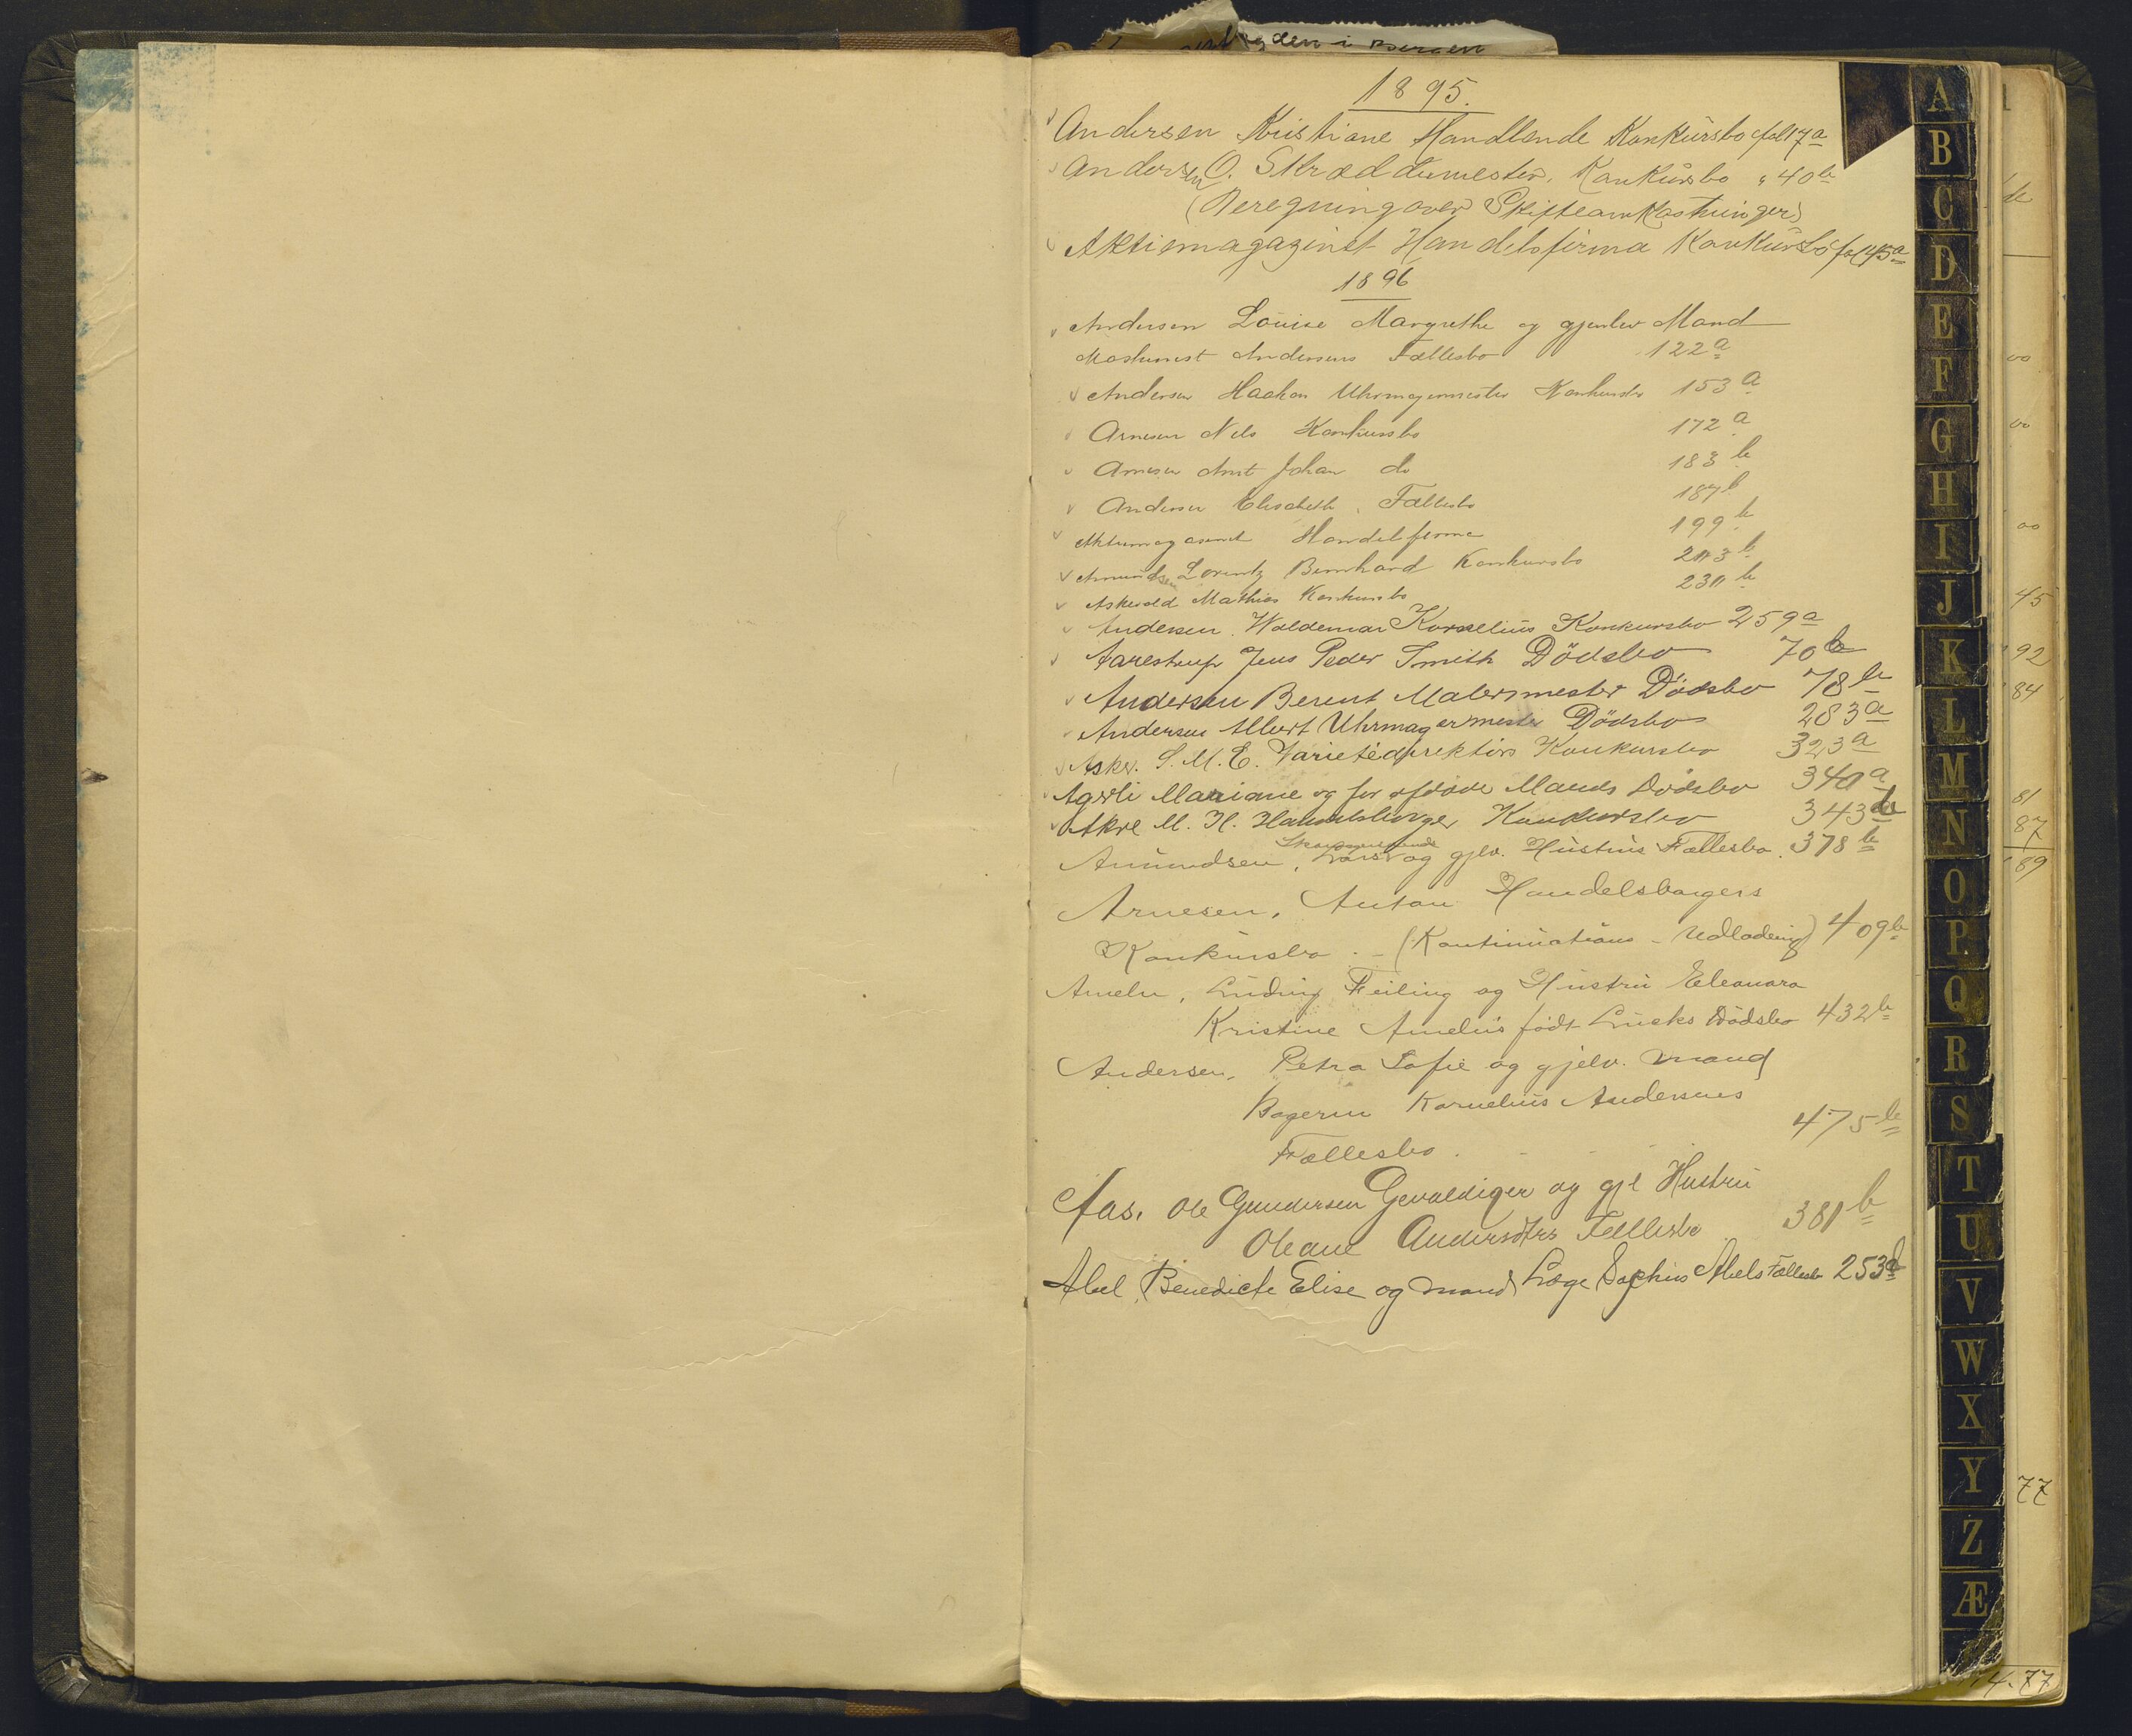 1895.
Andersen Kristiane Handlende Konkursbo fol 17a
Andersen O. Skræddermester, Konkursbo " 40b
(Beregning over Skifteomkostninger)
Aktiemagazinet Handelsfirma Konkursbo fol 45a
1896
Andersen Louise Margrethe og gjenlev Mand
Maskinist Andersens Fællesbo 122a
Andersen Haakon Uhrmagermester Konkursbo 153a
Arnesen Nils Konkursbo 172a
Arnesen Arnt Johan do 183b
Andersen Elisabeth Fællesbo 187b
Aktiemagasinet Handelsfirma 199b
Amundsen Lorentz Bernhard Konkursbo 203b
Askevold Mathias Konkursbo 230b
Andersen Waldemar Kornelius Konkursbo 259a
Aarestrup Jens Peder Smith Dödsbo 70b
Andersen Berent Malermester Dödsbo 78b
Andersen Albert Uhrmagermester Dödsbo 283a
Asker. S. M. E. Varietédirektörs Konkursbo 323a
Mariane og før afdøde Mands Dødsbo 340a
Akre M. H. Handelsborger Konkursbo 343b
Amundsen, Lars og gjlv. Hustrus Fællesbo. 378b
Arnesen, Anton Handelsborgers
Konkursbo. - (Kontinuations-Udlodning) 409b
Ameln, Ludvig Feiling og Hustru Eleonora
Kristine Amelns født Lucks Dödsbo 432b
Andersen, Petra Sofie og gjelv. Mand
Kornelius Andersens
Fællesbo. - - 475b
Aas, Ole Gundersen Gevaldiger og gjl Hustru
Oleane Andersdtrs Fællesbo 381b
Abel, Benedicte Elise og mand Læge Sophus Abels Fællesbo 253a
A
B
C
D
E
F
G
H
I
J
K
L
M
N
O
P
Q
R
S
T
U
V
W
X
Y
Z
Æ
00
00
00
45
92
84
81
87
89
77
4.77